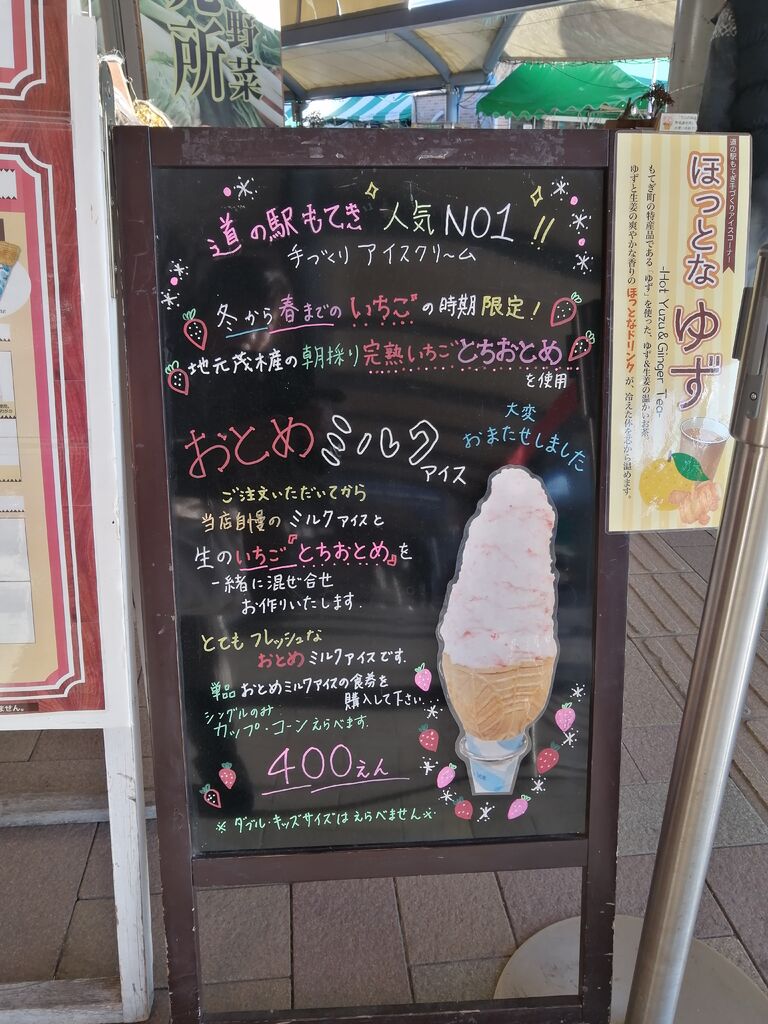 野菜
所
道の駅もてぎ 人気NO1!!
手づくり アイスクリーム
冬から春までのいちごの時期限定!
地元茂木産の朝採り完熟いちごとちおとめ
を使用
大変
おまたせしました
おとめミルク
アイス
ご注文いただいてから
当店自慢の ミルクアイスと
生のいちご『とちおとめ』を
一緒に混ぜ合せ
お作りいたします.
とても フレッシュな
おとめミルクアイスです.
単品 おとめミルクアイスの食券を
購入して下さい.
シングルのみ
カップ・コーンえらべます.
400えん
※ ダブル・キッズサイズはえらべません※
道の駅もてぎ手づくりアイスコーナー
ほっとな ゆず
-Hot Yuzu&Ginger Tea-
もてぎ町の特産品である「ゆず」を使った、ゆず&生姜の温かいお茶。
ゆずと生姜の爽やかな香りのほっとなドリンクが、冷えた体を芯から温めます。
ません。